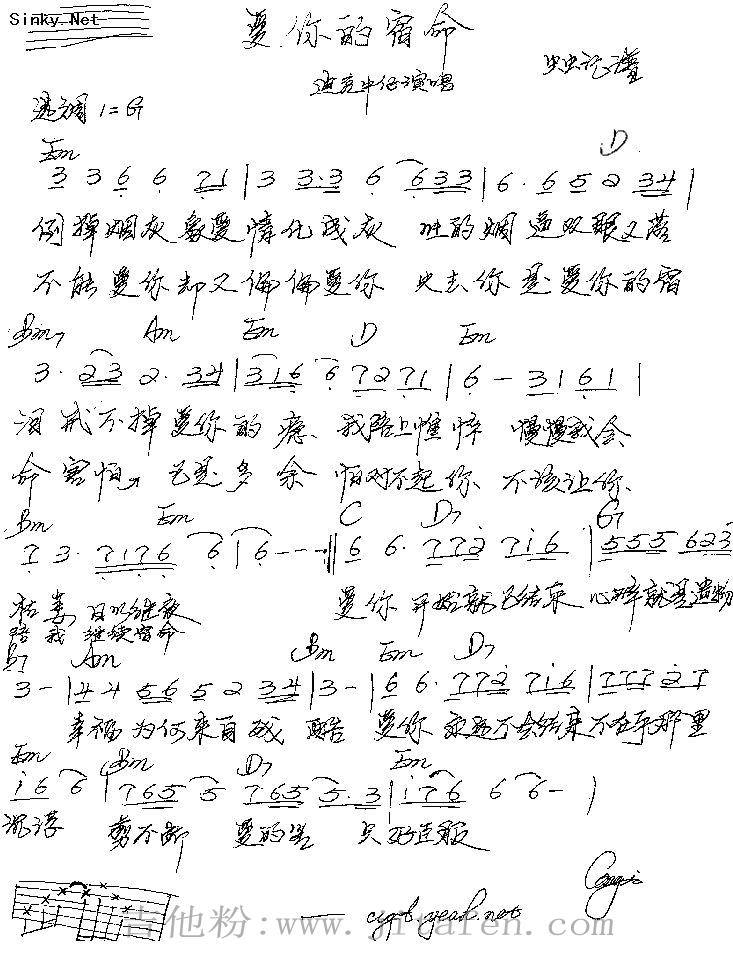 Sinky.Net
爱你的宿命
迪克牛仔演唱
虫虫记谱
选调 1=G
Em D
3 3 6 6 7 1 | 3 3·3 6 6 3 3 | 6 · 6 5 2 3 4 |
倒掉烟灰 象爱情化成灰 吐的烟 逼双眼又落
不能爱你却又偏偏爱你 失去你是爱你的宿
Bm7 Am Em D Em
3 · 2 3 2 · 3 4 | 3 1 6 6 7 2 7 1 | 6 - 3 1 6 1 |
泪 戒不掉爱你的瘾 我陪上憔悴 慢慢我会
命 害怕 也是多余 怕对不起你 不该让你
Bm Em C D7 G
7 3 · 7 1 7 6 6 | 6 - - - 6 6 · 7 7 2 7 1 6 | 5 5 5 6 2 3
枯萎 日以继夜 爱你 开始就已结束 心碎就是遗物
陪我 继续宿命
B7 Am Bm Em D7
3 - | 4 4 5 6 5 2 3 4 | 3 - | 6 6 · 7 7 2 7 1 6 | 7 7 7 2 7
幸福为何来自残酷 爱你 永远不会结束 不在乎那里
Em Bm D7 Em
1 6 6 | 7 6 5 5 7 6 5 5 · 3 | 1 7 6 6 6 - |
沉浮 剪不断 爱的苦 只好臣服
吉他粉:www.jitafen.com